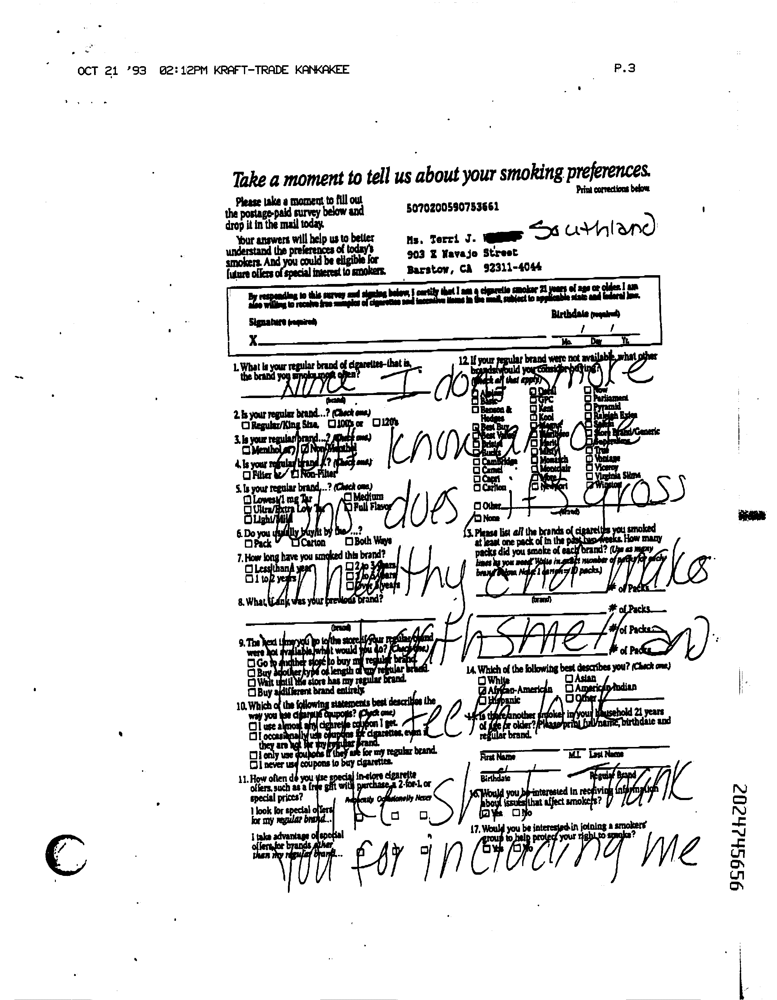 OCT 21 '93 02:12PM KRAFT-TRADE KANKAKEE P.3
Take a moment to tell us about your smoking preferences.
Print corrections below
Please take a moment to fill out
the postage-paid survey below and
drop it in the mail today.
Your answers will help us to better
understand the preferences of today's
smokers. And you could be eligible for
future offers of special interest to smokers.
5070200590753661
Ms. Terri J.
Southland
903 E Navajo Street
Barstow, CA 92311-4044
By responding to this survey and signing below, I certify that I am a cigarette smoker 21 years of age or older. I am
also willing to receive free samples of cigarettes and incentive items in the mail, subject to applicable state and federal law.
Signature (required)
Birthdate (required)
X
/ /
Mo. Day Yr.
1. What is your regular brand of cigarettes-that is,
the brand you smoke most often?
(brand)
2. Is your regular brand...? (Check one)
Regular/King Size, 100's or 120's
3. Is your regular brand...? (Check one)
Menthol or Non-Menthol
4. Is your regular brand...? (Check one)
Filter or Non-Filter
5. Is your regular brand...? (Check one)
Lowest/1 mg Tar
Medium
Ultra/Extra Low Tar
Full Flavor
Light/Mild
6. Do you usually buy it by the...?
Pack Carton Both Ways
7. How long have you smoked this brand?
Less than 1 year
1 to 2 years
8. What, if any, was your previous brand?
(brand)
9. The next time you go to the store, if your regular brand
were not available, what would you do? (Check one)
Go to another store to buy my regular brand.
Buy another type or length of my regular brand.
Wait until the store has my regular brand.
Buy a different brand entirely.
10. Which of the following statements best describes the
way you use cigarette coupons? (Check one)
I use almost any cigarette coupon I get.
I occasionally use coupons for cigarettes, even if
they are not for my regular brand.
I only use coupons if they are for my regular brand.
I never use coupons to buy cigarettes.
11. How often do you use special in-store cigarette
offers, such as a free gift with purchase, a 2-for-1, or
special prices?
Frequently Occasionally Never
I look for special offers
for my regular brand...
I take advantage of special
offers for brands other
than my regular brand...
12. If your regular brand were not available, what other
brands would you consider buying?
(Check all that apply)
Basic
Benson &
Hedges
Best Buy
Best Value
Bristol
Bucks
Cambridge
Camel
Capri
Carlton
Doral
GPC
Kent
Kool
Magna
Marlboro
Merit
Misty
Monarch
Montclair
More
Newport
Now
Parliament
Pyramid
Raleigh Extra
Salem
Store Brand/Generic
Superslims
True
Vantage
Viceroy
Virginia Slims
Winston
Other
(brand)
None
13. Please list all the brands of cigarettes you smoked
at least one pack of in the past two weeks. How many
packs did you smoke of each brand? (Use as many
lines as you need. Write in exact number of packs for each
brand below. Note: 1 carton=10 packs.)
(brand)
# of Packs
# of Packs
# of Packs
# of Packs
14. Which of the following best describes you? (Check one)
White
Asian
African-American
American-Indian
Hispanic
Other
15. Is there another smoker in your household 21 years
of age or older? Please print full name, birthdate and
regular brand.
First Name M.I. Last Name
Birthdate Regular Brand
16. Would you be interested in receiving information
about issues that affect smokers?
Yes No
17. Would you be interested in joining a smokers'
group to help protect your right to smoke?
Yes No
None I don't smoke
know anyone
who dues, its gross
unhealthy and makes
breath smell and
teeth
Thank
you for including me
2024745656